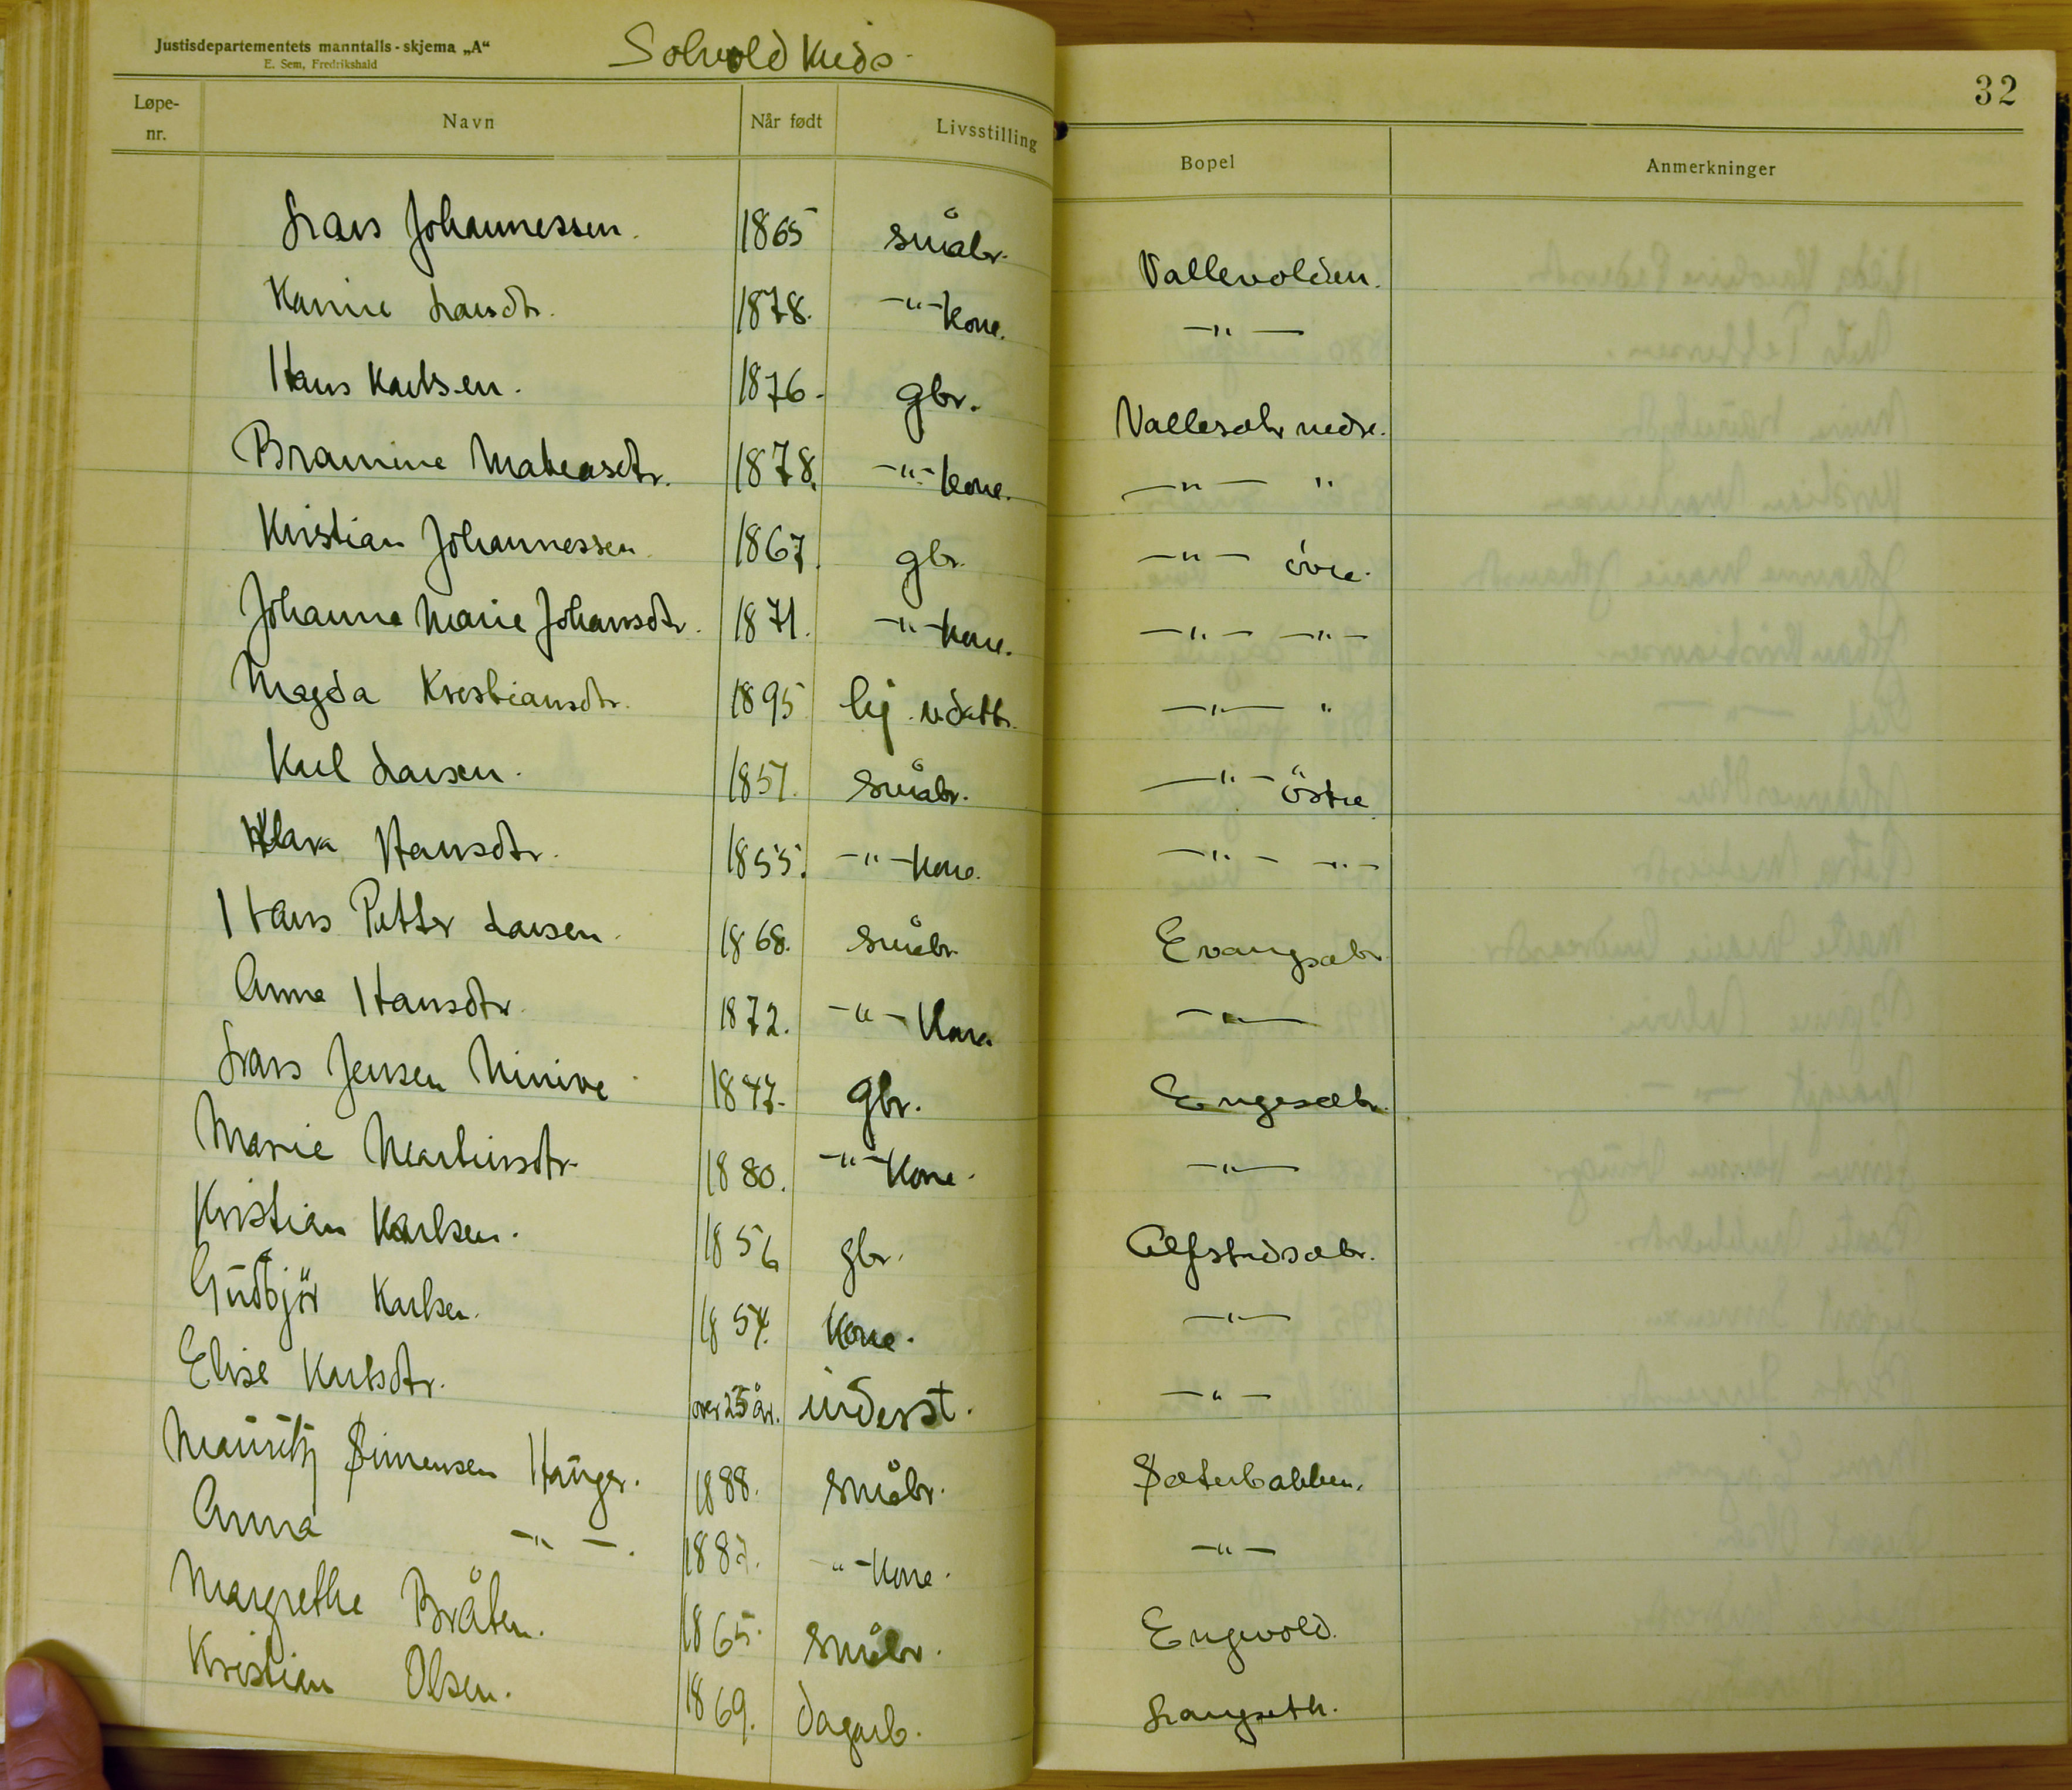 Justisdepartementets manntalls-skjema „A“
E. Sem, Fredrikshald
Solvold Kreds
32
Løpe-nr. Navn Når født Livsstilling Bopel Anmerkninger
Lars Johannessen. 1865 småbr. Vallevolden.
Karine Larsdtr. 1878. -"- kone. -"-
Hans Karlsen. 1876. gbr. Vallesætr nedre.
Bramine Mateasdtr. 1878. -"- kone. -"- "
Kristian Johannessen 1867. gbr. -"- övre.
Johanne Marie Johansdtr. 1871. -"- kone. -"- -"-
Magda Kristiansdtr. 1895 hj. v. datr. -"- "
Karl Larsen. 1851. småbr. -"- östre
Klara Hansdtr. 1855. -"- kone. -"- -"-
Hans Petter Larsen 1868. småbr Evangsætr
Anne Hansdtr. 1872. -"- Kone -"-
Lars Jensen Ninive 1847. gbr. Engesætr.
Marie Martinsdtr. 1880. -"- Kone. -"-
Kristian Karlsen. 1856 gbr. Alfstadsætr.
Gudbjör Karlsen. 1854. Kone. -"-
Elise Karlsdtr. over 25 år. inderst. -"-
Mauritz Simensen Hauger. 1888. småbr. Sæterbakken.
Anna -"-. 1887. " - Kone. -"-
Margrethe Bråten. 1865. småbr. Engvold.
Kristian Olsen. 1869. dagarb. Langseth.